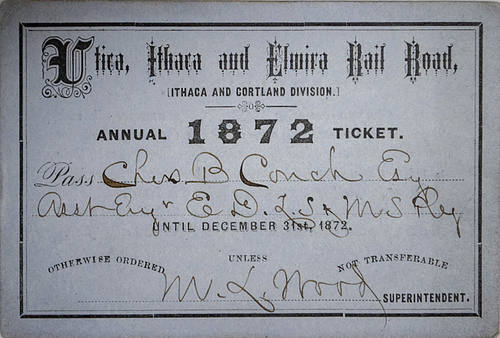 Utica, Ithaca and Elmira Rail Road,
[ITHACA AND CORTLAND DIVISION.]
ANNUAL 1872 TICKET.
Pass Chas B Couch Esq
Asst Eng'r E D. L. S & M S Rly
UNTIL DECEMBER 31st, 1872,
OTHERWISE ORDERED UNLESS NOT TRANSFERABLE
M. L. Wood SUPERINTENDENT.